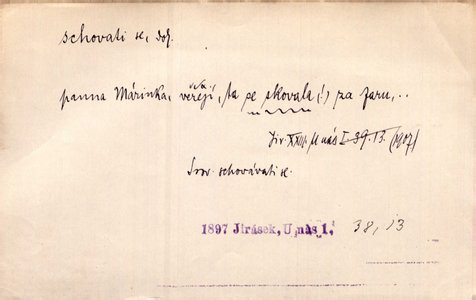 schovati se, dok.
panna Márinka, veřejí, ta se skovala (!) za faru,..
Jir. XXIII. U nás I 39.13. (1907)
Srov. schovávati se.
1897 Jirásek, U nás 1, 38, 13